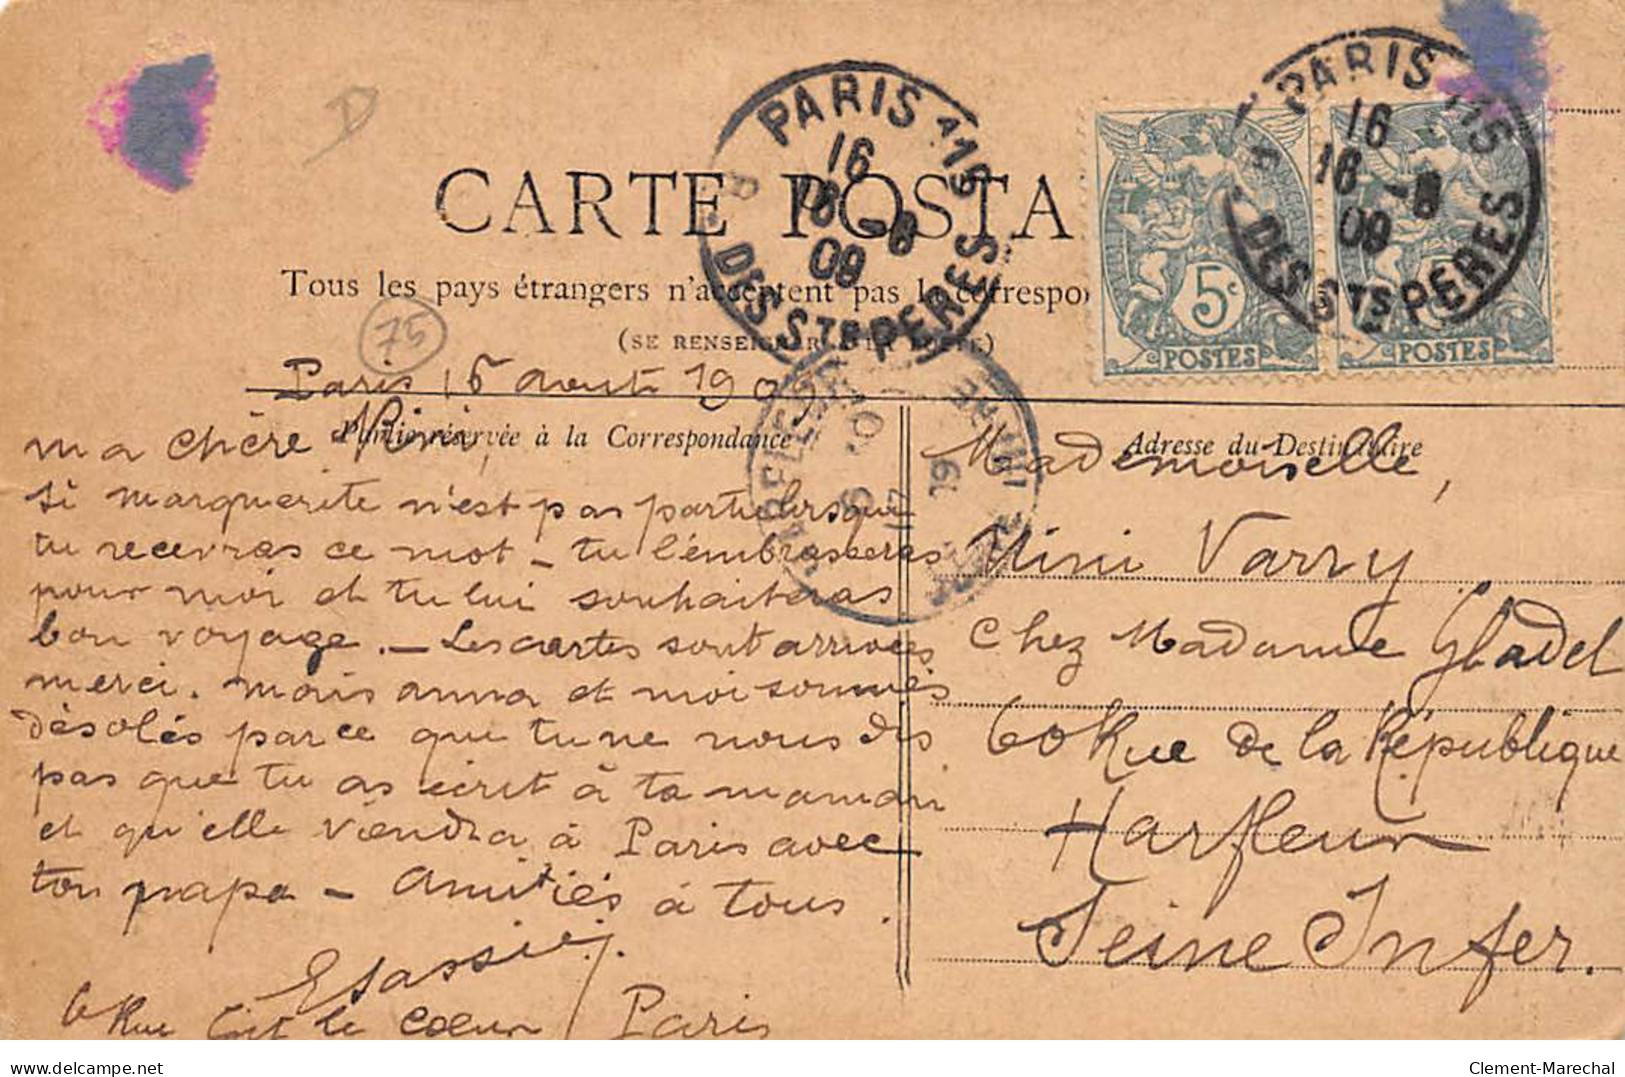 D
CARTE POSTA
Tous les pays étrangers n'acceptent pas la correspo
(SE RENSEIGNER A LA POSTE)
75
PARIS 115
16
16 -8
09
R. DES STS PERES
PARIS 115
16
16 -8
09
R. DES STS PERES
5c
POSTES
POSTES
Paris 16 aout 190
Partie réservée à la Correspondance
Adresse du Destinataire
ma chère Nini,
si marguerite n'est pas partie lorsque
tu recevras ce mot – tu l'embrasseras
pour moi et tu lui souhaiteras
bon voyage. – Les cartes sont arrivées
merci. mais anna et moi sommes
désolés parce que tu ne nous dis
pas que tu as écrit à ta maman
et qu'elle viendra à Paris avec
ton papa – amitiés à tous.
6 Rue Gît le Coeur Paris
Mademoiselle,
Nini Varry
Chez Madame
60 Rue de la République
Harfleur
Seine Infer.
www.delcampe.net
Clement-Marechal